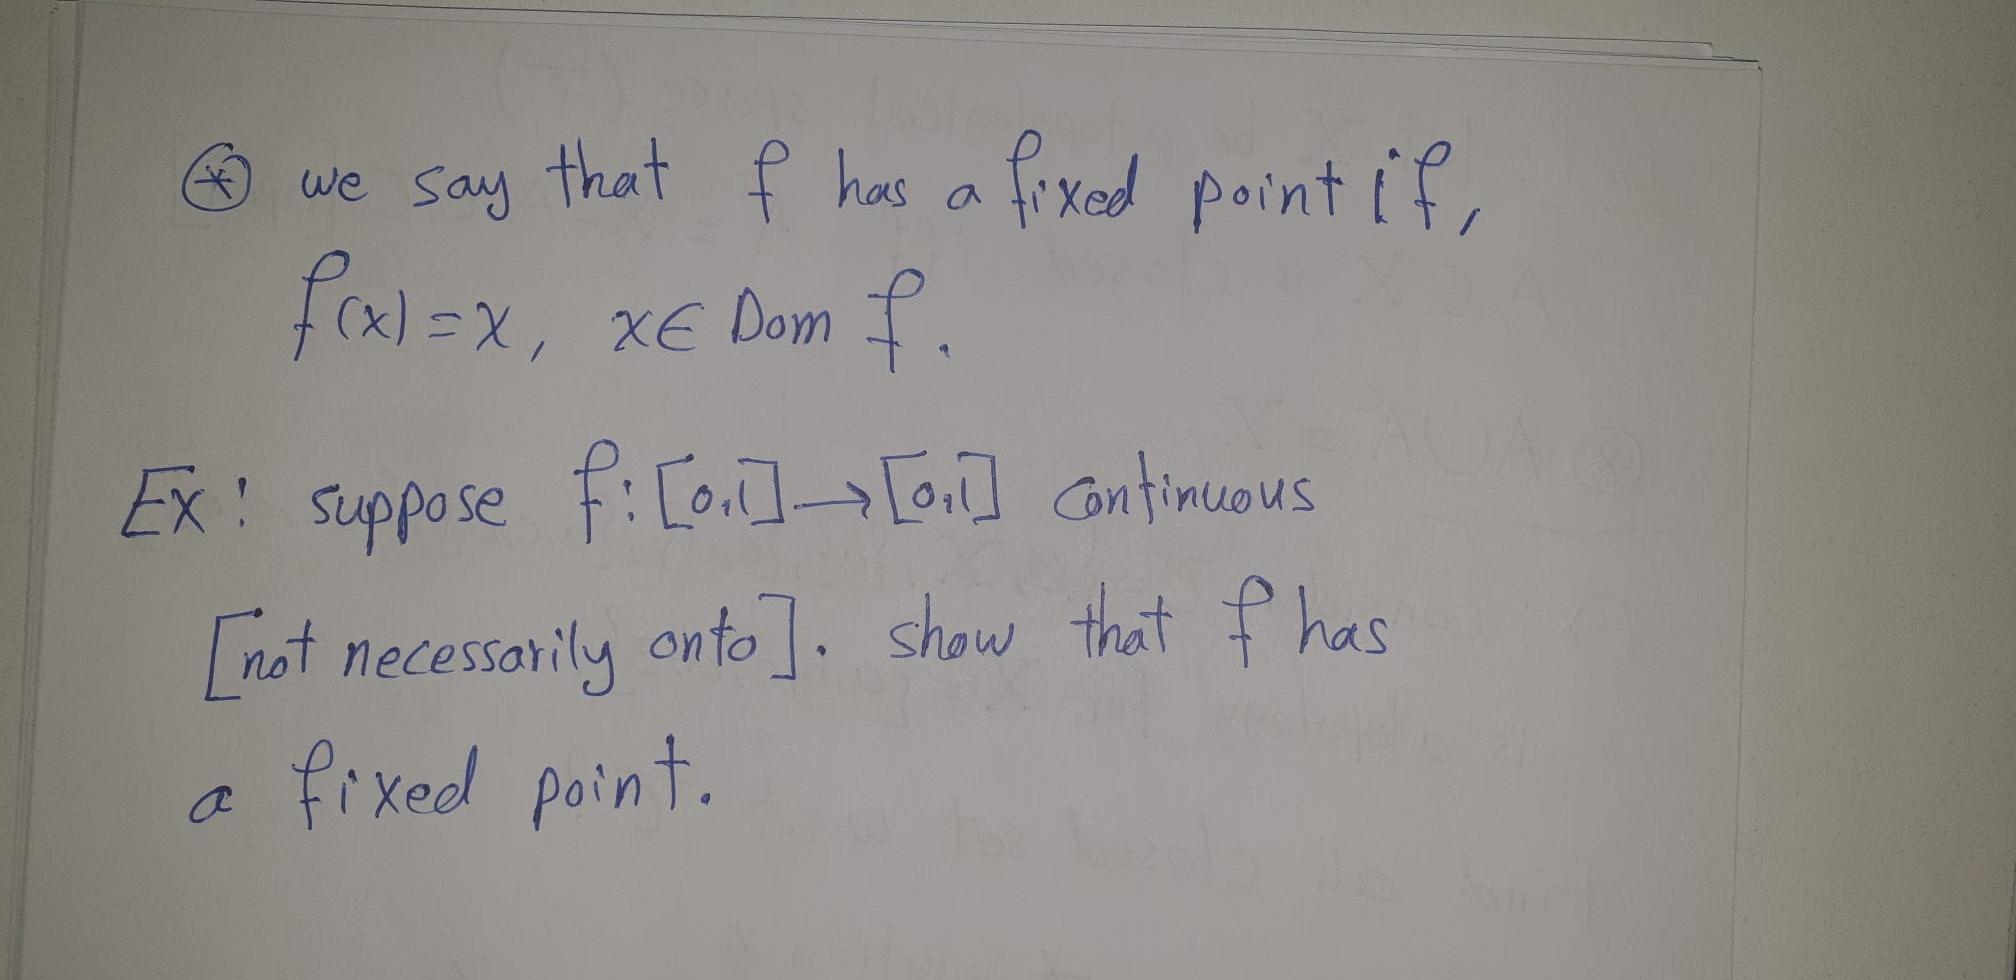 ⊛ we say that f has a fixed point if,
f(x)=x, x∈ Dom f.
Ex: suppose f:[0,1]→[0,1] continuous
[not necessarily onto]. show that f has
a fixed point.